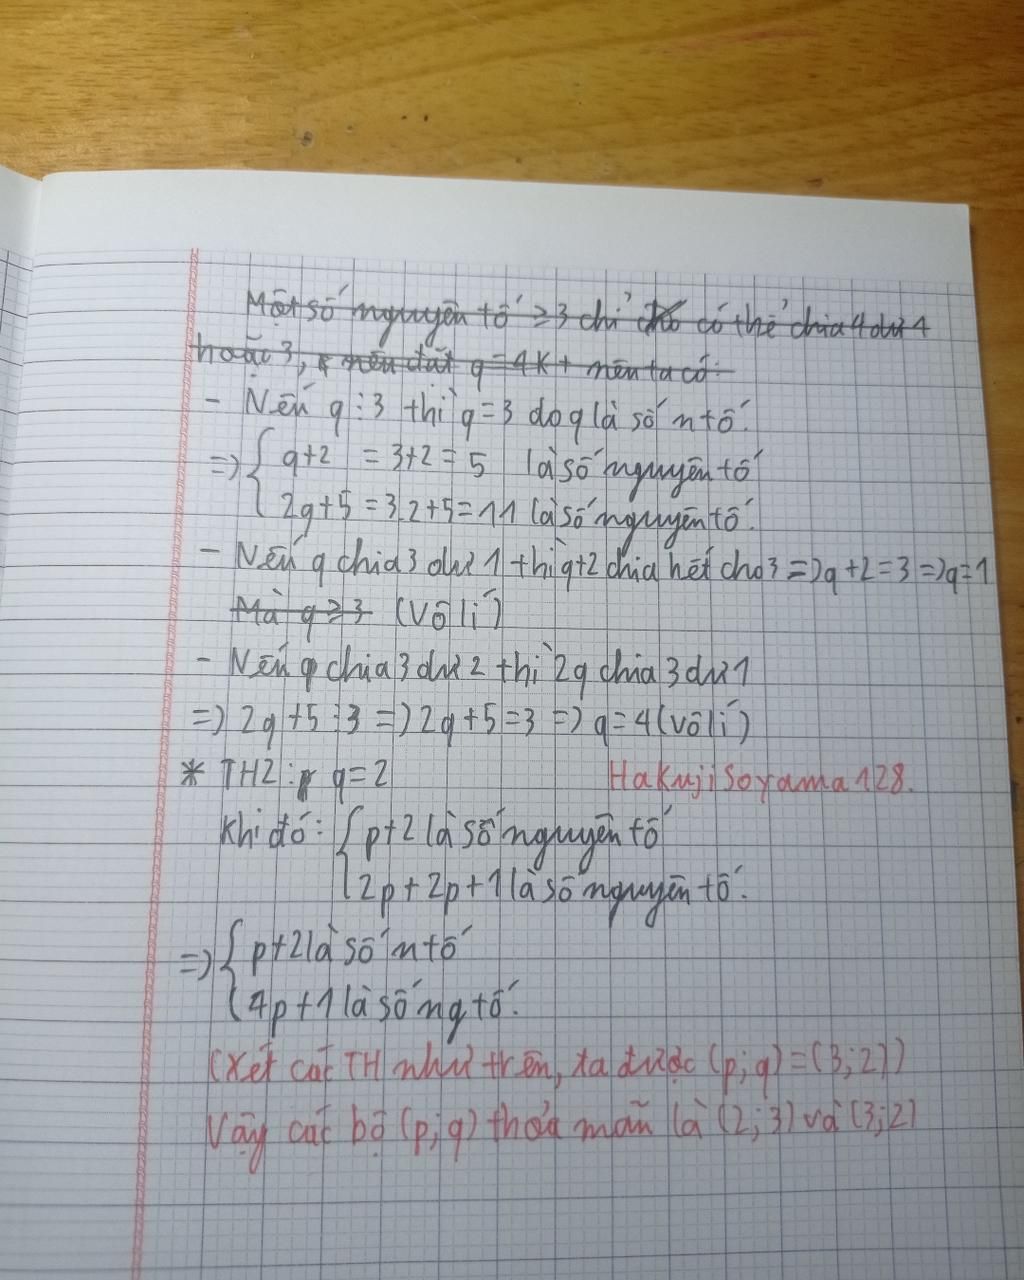 Một số nguyên tố ≥3 chỉ có thể chia 4 dư 1
hoặc 3, nên đặt q = 4k + nên ta có:
- Nếu q ⋮ 3 thì q = 3 do q là số n tố.
=> { q+2 = 3+2 = 5 là số nguyên tố
2q+5 = 3.2+5 = 11 là số nguyên tố.
- Nếu q chia 3 dư 1 thì q+2 chia hết cho 3 => q+2 = 3 => q=1
Mà q ≥ 3 (Vô lí)
- Nếu q chia 3 dư 2 thì 2q chia 3 dư 1
=> 2q+5 ⋮ 3 => 2q+5 = 3 => q = 4 (vô lí)
* TH2: q=2
HakujiSoyama128.
Khi đó: { p+2 là số nguyên tố
2p+2p+1 là số nguyên tố.
=> { p+2 là số n tố
4p+1 là số ng tố.
(Xét các TH như trên, ta được (p;q)=(3;2))
Vậy các bộ (p;q) thỏa mãn là (2;3) và (3;2)